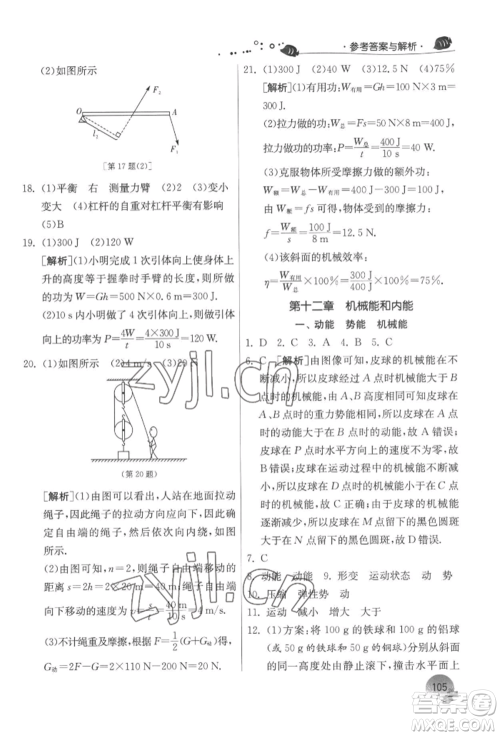 ·参考答案与解析·
(2)如图所示
O
A
F₂
l₁
F₁
[第17题(2)]
18. (1)平衡 右 测量力臂 (2)2 (3)变小
变大 (4)杠杆的自重对杠杆平衡有影响
(5)B
19. (1)300 J (2)120 W
[解析](1)小明完成1次引体向上身体上
升的高度等于握拳时手臂的长度,则所做
的功为W=Gh=500 N×0.6 m=300 J.
(2)10 s内小明做了4次引体向上,则引
体向上的功率为P=4W/t=4×300 J/10 s=120 W.
20. (1)如图所示 (2)4 m/s (3)20 N
(第20题)
[解析](1)由图可以看出,人站在地面拉动
绳子,因此绳子向下移动,首先确定向下移
动的自由端的绳子,然后依次绕线即可.
(2)由图可知,n=2,则绳子自由端移动
的距离s=2h=2×20 m=40 m,绳子自由端
向下移动的速度v=s/t=40 m/10 s=4 m/s.
(3)不计绳重及摩擦,根据F=1/2(G+G动)得,
G动=2F-G=2×60 N-100 N=20 N.
21. (1)300 J (2)40 W (3)12.5 N (4)75%
[解析](1)有用功:W有用=Gh=100 N×3 m=
300 J.
(2)拉力做功:W总=Fs=50 N×8 m=400 J,
拉力做功的功率:P=W总/t=400 J/10 s=40 W.
(3)克服物体所受摩擦力做的额外功:
W额=W总-W有用=400 J-300 J=100 J,
由W额=fs可得,物体受到的摩擦力:
f=W额/s=100 J/8 m=12.5 N.
(4)该斜面的机械效率:
η=W有用/W总×100%=300 J/400 J×100%=75%.
第十二章 机械能和内能
一、动能 势能 机械能
1. D 2. C 3. B 4. B 5. C
6. C [解析]由图像可知,皮球的机械能在
减小,所以皮球在A点时机械能大于在B
点时机械能,故C正确;由图像可知,皮球在
A、B点时的高度相同,质量相同,则皮球在
A、B点时的重力势能相同,故A错误;因为
皮球在A点时机械能大于在B点时机械
能,所以皮球在A点时的动能大于B点时
的动能,皮球在A点时的速度大于B点时
的速度,故B错误;由图像可知,皮球的机
械能在减小,所以第1次反弹后的机械能
大于第2次反弹后的机械能,第1次碰撞
地面的速度大于第2次碰撞地面的速度,
则第1次碰撞时皮球的形变程度更大,所
以,第1次反弹时留下的黑色圆斑大于第
2次反弹时留下的黑色圆斑,故D错误.
7. C
8. 动能 动能 9. 形变 运动状态 动 势
10. 压缩 弹性势 动
11. 运动 减小 增大 大于
12. (1)方案:将100 g的铁球和100 g的铝球
(或50 g的铁球和50 g的铝球)分别从斜
面的同一高度由静止滚下,撞击水平面上
zyjl.cn
zyjl.cn
105
答案圈
MXQE.COM